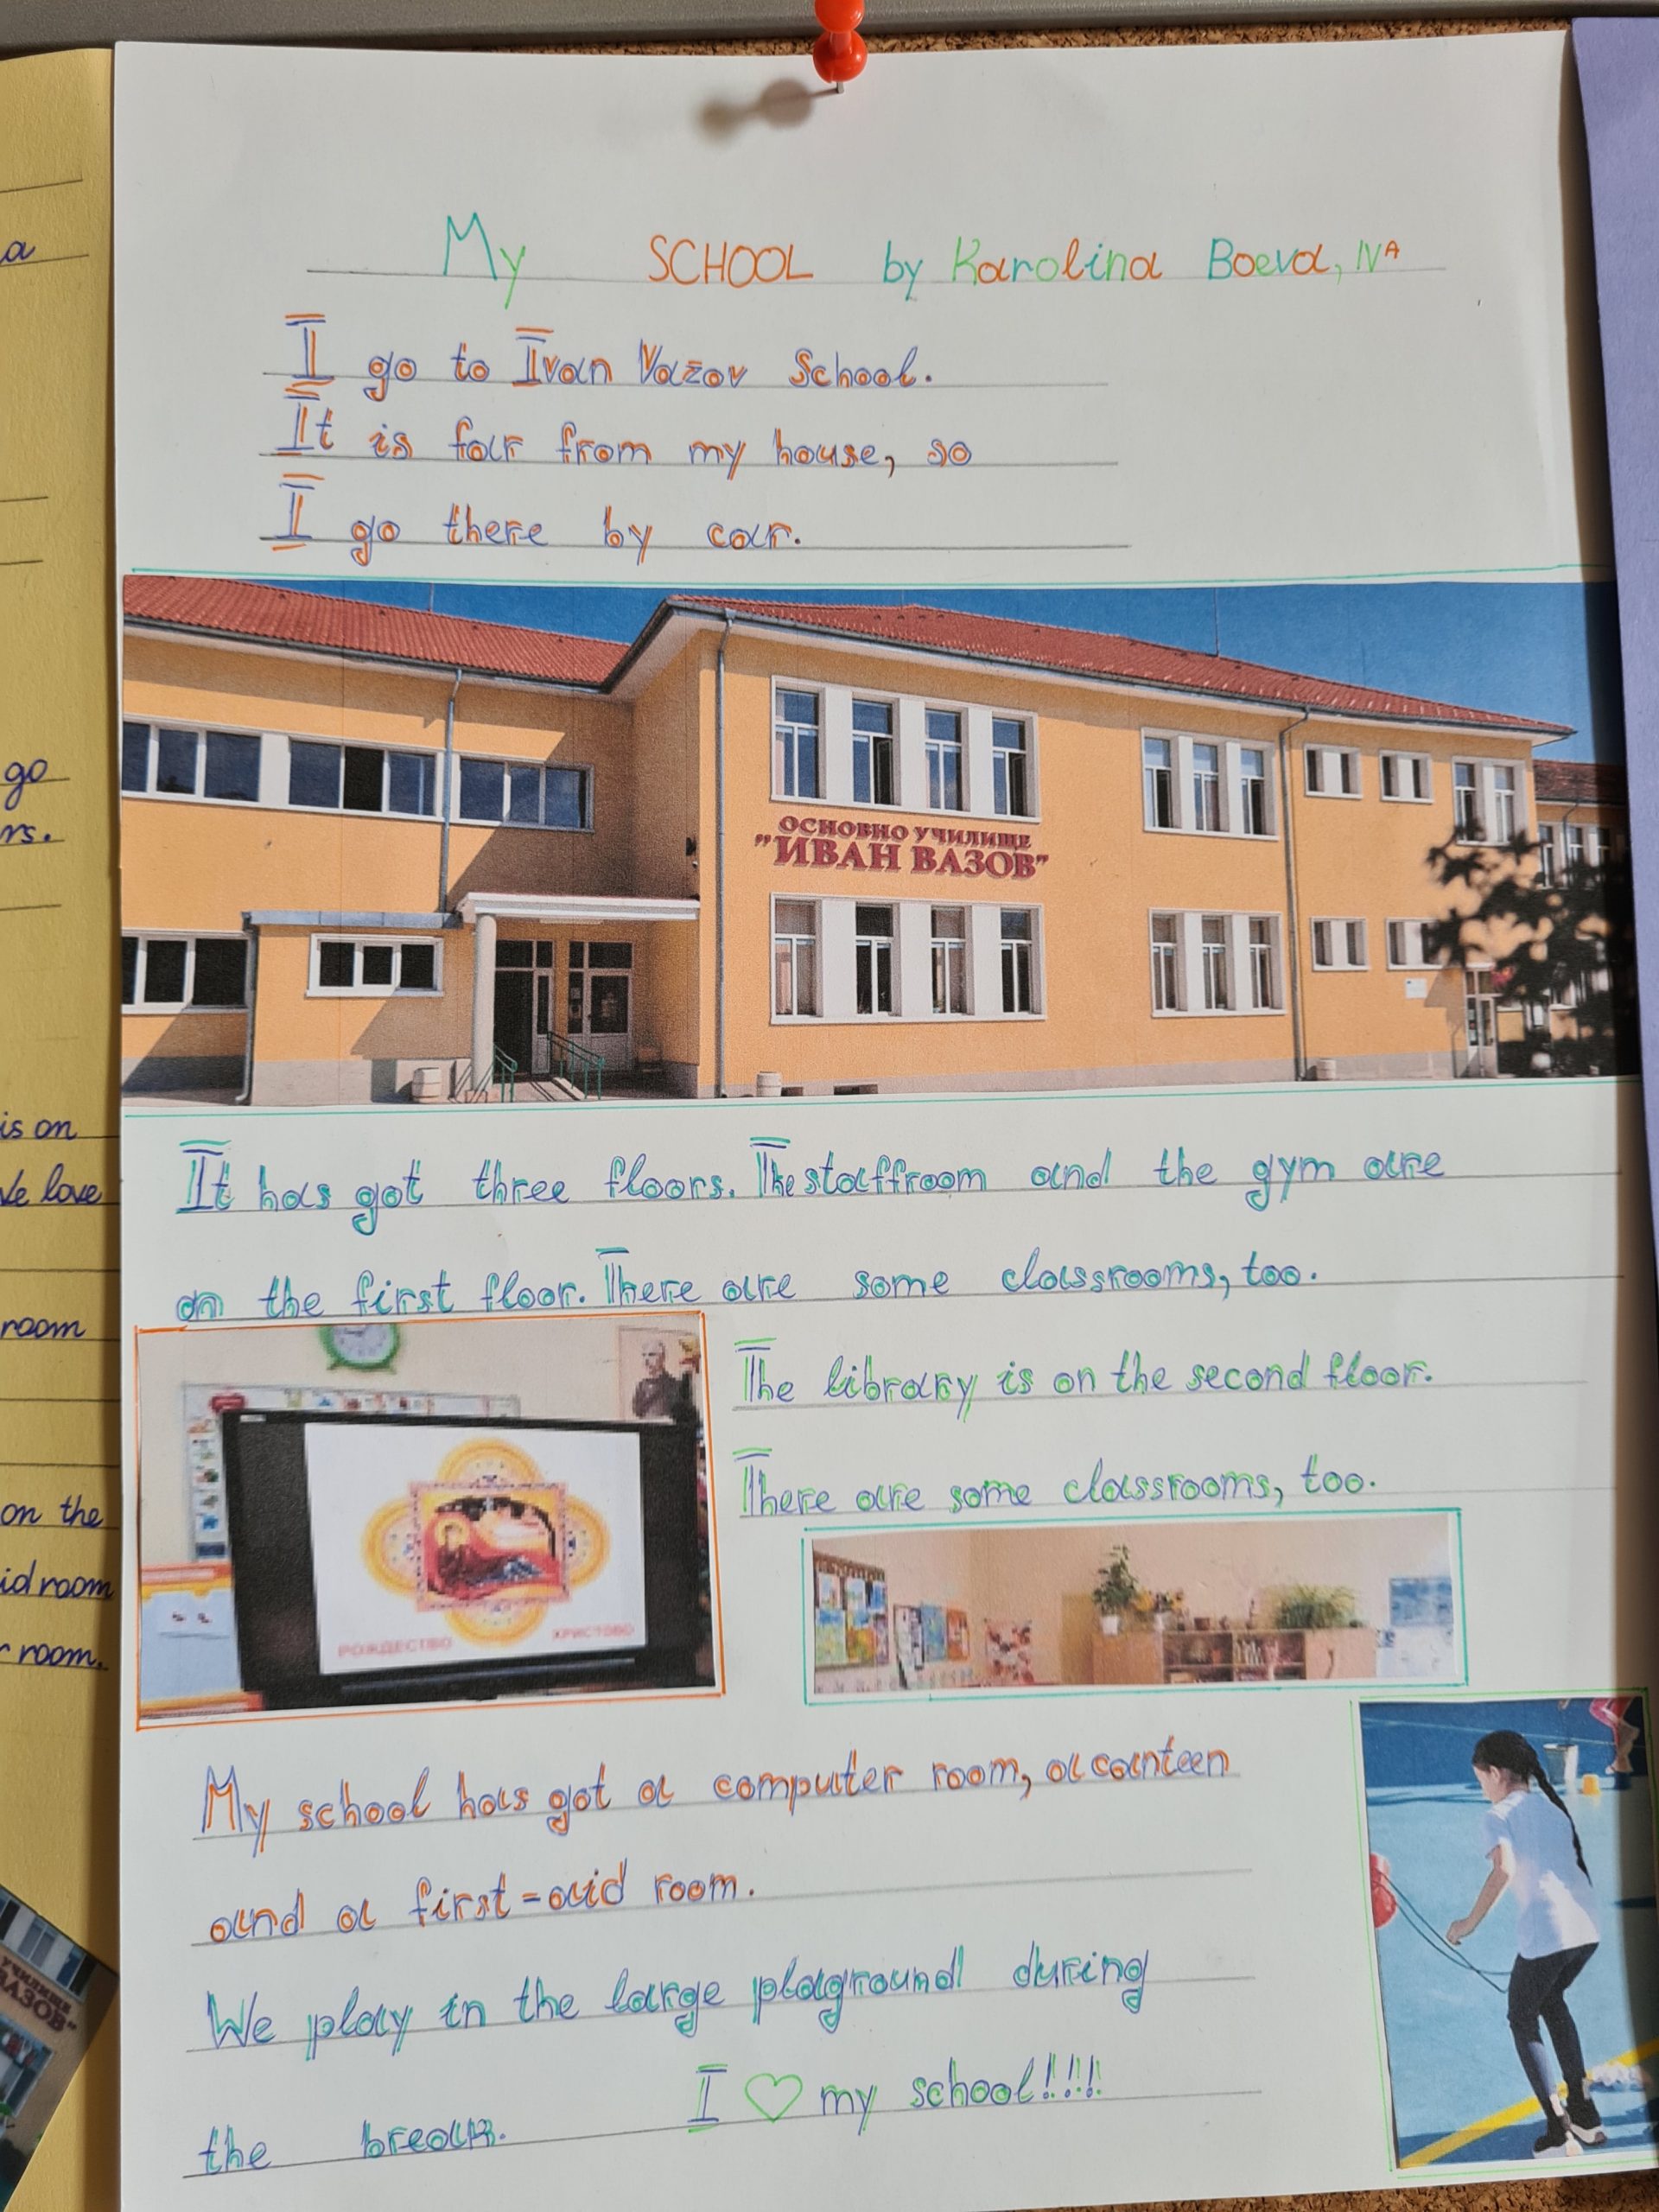 My SCHOOL by Karolina Boeva, IVA
I go to Ivan Vazov School.
It is far from my house, so
I go there by car.
ОСНОВНО УЧИЛИЩЕ
"ИВАН ВАЗОВ"
It has got three floors. The staffroom and the gym are
on the first floor. There are some classrooms, too.
The library is on the second floor.
There are some classrooms, too.
РОЖДЕСТВО ХРИСТОВО
My school has got a computer room, a canteen
and a first-aid room.
We play in the large playground during
the break.
I ♡ my school!!!!
a
go
rs.
is on
We love
room
on the
id room
r room.
УЧИЛИЩЕ
ВАЗОВ"